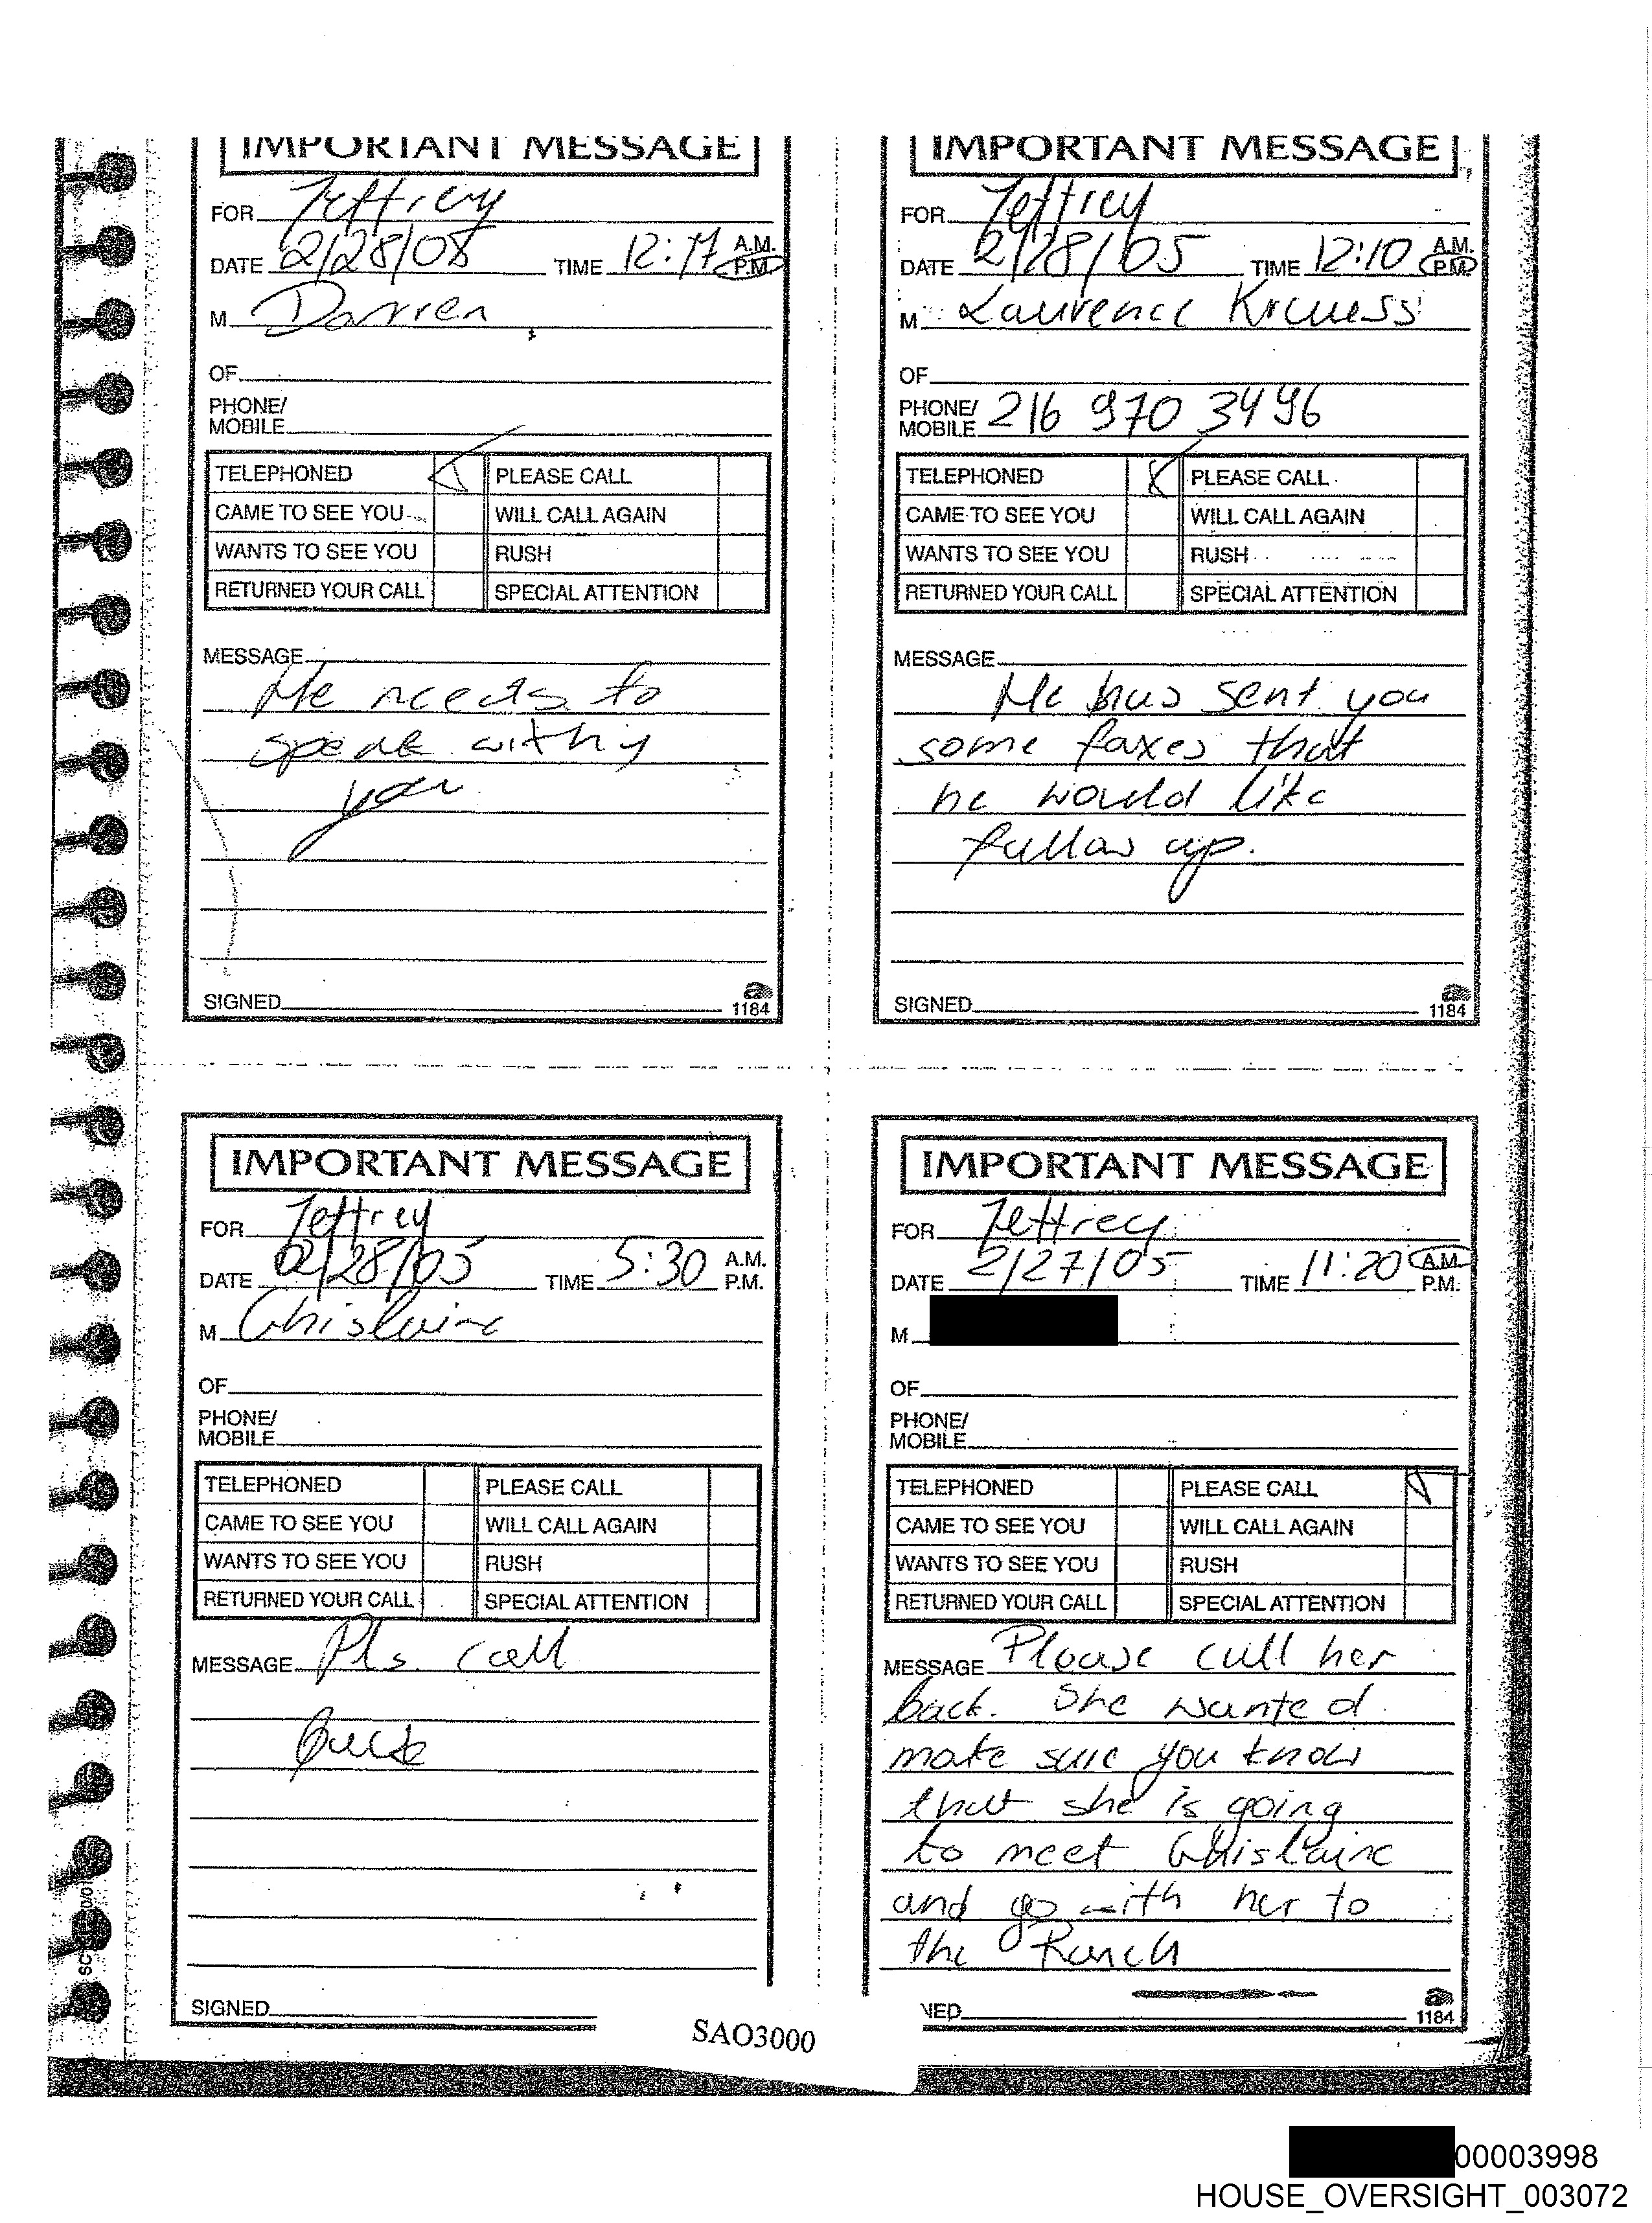 IMPORTANT MESSAGE
FOR Jeffrey
DATE 2/28/05 TIME 12:17 A.M. P.M.
M Darren
OF
PHONE/
MOBILE
TELEPHONED PLEASE CALL
CAME TO SEE YOU WILL CALL AGAIN
WANTS TO SEE YOU RUSH
RETURNED YOUR CALL SPECIAL ATTENTION
MESSAGE
He needs to
speak with y
you
SIGNED
1184
IMPORTANT MESSAGE
FOR Jeffrey
DATE 2/28/05 TIME 12:10 A.M. P.M.
M Laurence
OF
PHONE/
MOBILE 216 970 3496
TELEPHONED PLEASE CALL
CAME TO SEE YOU WILL CALL AGAIN
WANTS TO SEE YOU RUSH
RETURNED YOUR CALL SPECIAL ATTENTION
MESSAGE
He has sent you
some faxes that
he would like
follow up.
SIGNED
1184
IMPORTANT MESSAGE
FOR Jeffrey
DATE 02/28/05 TIME 5:30 A.M. P.M.
M Ghislaine
OF
PHONE/
MOBILE
TELEPHONED PLEASE CALL
CAME TO SEE YOU WILL CALL AGAIN
WANTS TO SEE YOU RUSH
RETURNED YOUR CALL SPECIAL ATTENTION
MESSAGE Pls. call
SIGNED
IMPORTANT MESSAGE
FOR Jeffrey
DATE 2/27/05 TIME 11:20 A.M. P.M.
M
OF
PHONE/
MOBILE
TELEPHONED PLEASE CALL
CAME TO SEE YOU WILL CALL AGAIN
WANTS TO SEE YOU RUSH
RETURNED YOUR CALL SPECIAL ATTENTION
MESSAGE Please call her
back. She wanted
make sure you know
that she is going
to meet Ghislaine
and go with her to
the Ranch
NED
1184
SAO3000
00003998
HOUSE_OVERSIGHT_003072